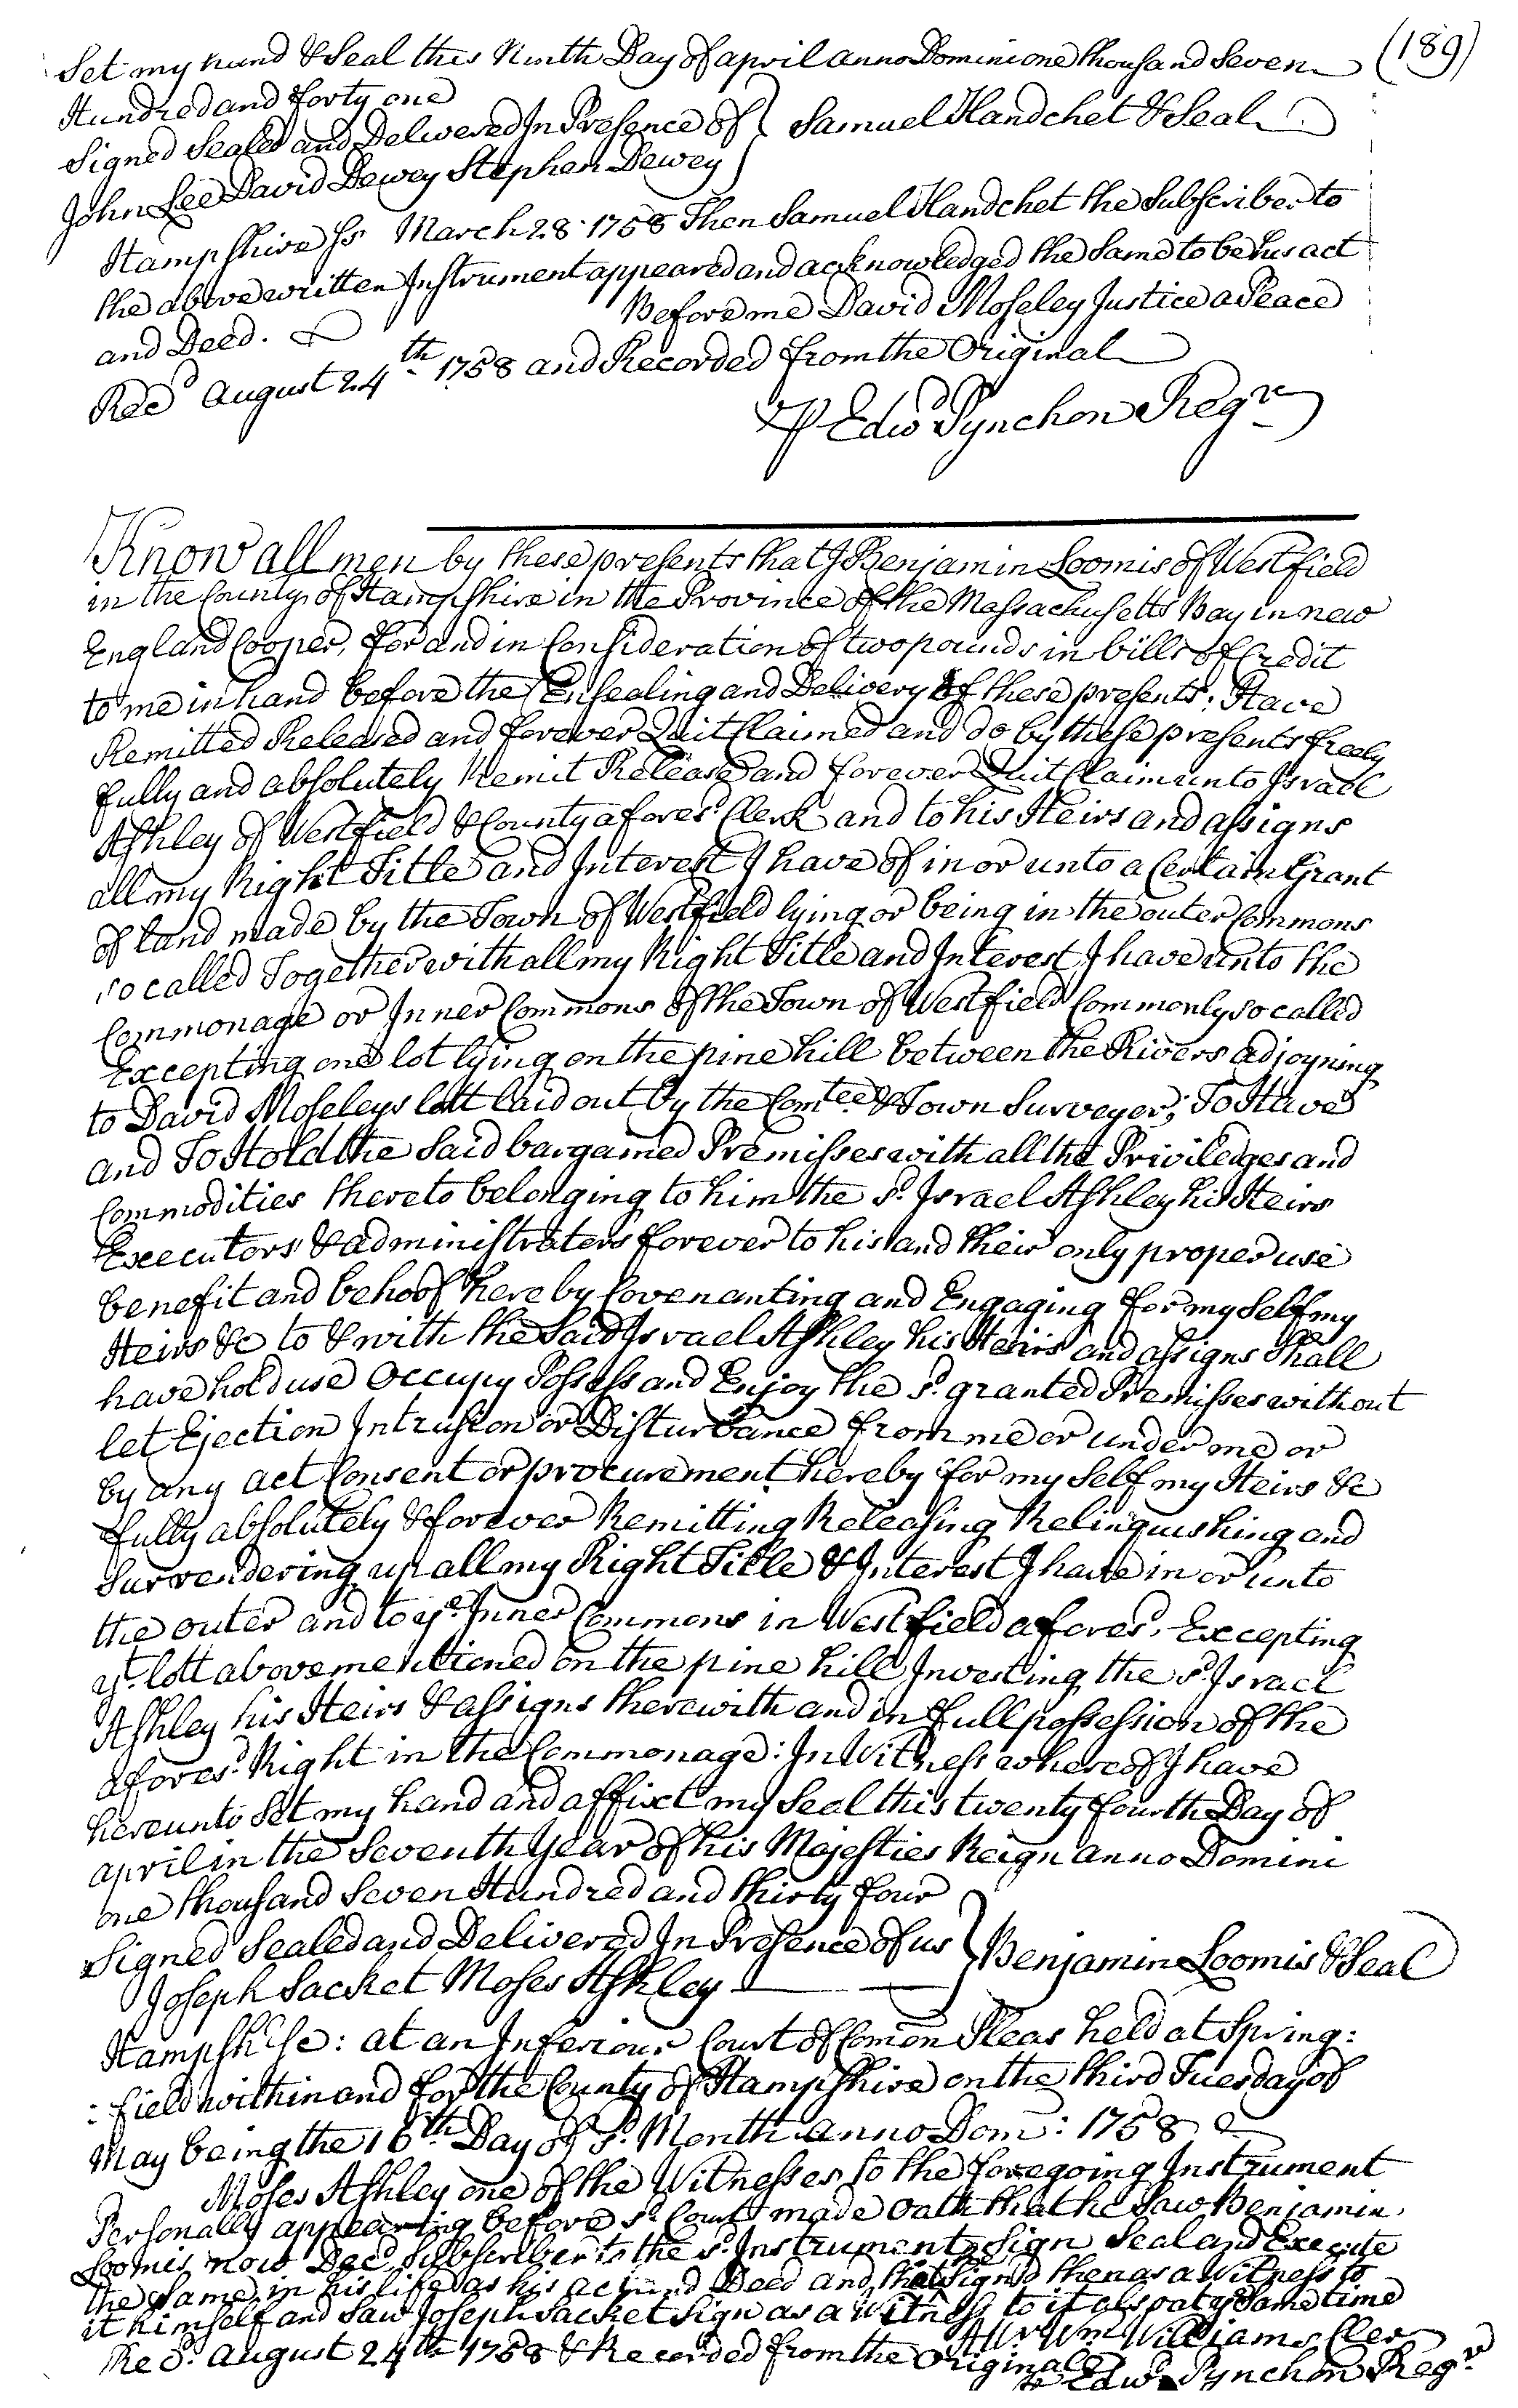 (189)
Set my hand & Seal this Ninth Day of april anno Domini one thousand Seven
Hundred and forty one
Signed Sealed and Delivered In Presence of } Samuel Handchet & Seal
John Lee David Dewey Stephen Dewey
Hampshire ss March 28 1758 Then Samuel Handchet the Subscriber to
the above written Instrument appeared and acknowledged the Same to be his act
and Deed. Before me David Moseley Justice a Peace
Recd August 24th 1758 and Recorded from the Original
P Edwd Pynchon Regr
Know all men by these presents that I Benjamin Loomis of Westfield
in the County of Hampshire in the Province of the Massachusetts Bay in new
England Cooper, for and in Consideration of two pounds in bills of Credit
to me in hand before the Ensealing and Delivery of these presents; Have
Remitted Released and forever Quit Claimed and do by these presents freely
fully and absolutely Remit Release and forever Quit Claim unto Israel
Ashley of Westfield & County afores.d Clerk and to his Heirs and assigns
all my Right Title and Interest I have of in or unto a Certain Grant
of land made by the Town of Westfield lying or being in the outer Commons
so called Together with all my Right Title and Interest I have unto the
Commonage or Inner Commons of the Town of Westfield Commonly so called
Excepting one lot lying on the pine hill between the Rivers adjoyning
to David Moseleys lott laid out by the Comtee & Town Surveyor; To Have
and To Hold the Said bargained Premisses with all the Priviledges and
Commodities thereto belonging to him the s.d Israel Ashley his Heirs
Executors & administrators forever to his and their only proper use
benefit and behoof hereby Covenanting and Engaging for my Self my
Heirs &c to & with the Said Israel Ashley his Heirs and assigns Shall
have hold use Occupy Possess and Enjoy the s.d granted Premisses without
let Ejection Intrusion or Disturbance from me or under me or
by any act Consent or procurement hereby for my Self my Heirs &c
fully absolutely & forever Remitting Releasing Relinquishing and
Surrendering up all my Right Title & Interest I have in or unto
the outer and to ye. Inner Commons in Westfield afores.d Excepting
yt. lott above mentioned on the pine hill Investing the s.d Israel
Ashley his Heirs & assigns therewith and in full possession of the
afores.d Right in the Commonage: In Witness whereof I have
hereunto Set my hand and affixt my Seal this twenty fourth Day of
april in the Seventh Year of his Majesties Reign anno Domini
one thousand Seven Hundred and thirty four
Signed Sealed and Delivered In Presence of us } Benjamin Loomis & Seal
Joseph Sacket Moses Ashley
Hampsh: at an Inferiour Court of Comon Pleas held at Spring:
: field within and for the County of Hampshire on the third Tuesday of
May being the 16th Day of s.d Month anno Dom: 1758
Moses Ashley one of the Witnesses to the foregoing Instrument
Personally appearing before s.d Court made oath that he Saw Benjamin
Loomis now Decd Subscriber to the s.d Instrument Sign Seal and Execute
the Same in his life as his act and Deed and that Signd then as a Witness to
it himself and Saw Joseph Sacket Sign as a Witness to it also at ye Same time
Attr Wm Williams Cler
Recd. August 24th 1758 & Recorded from the Original
P Edwd Pynchon Regr